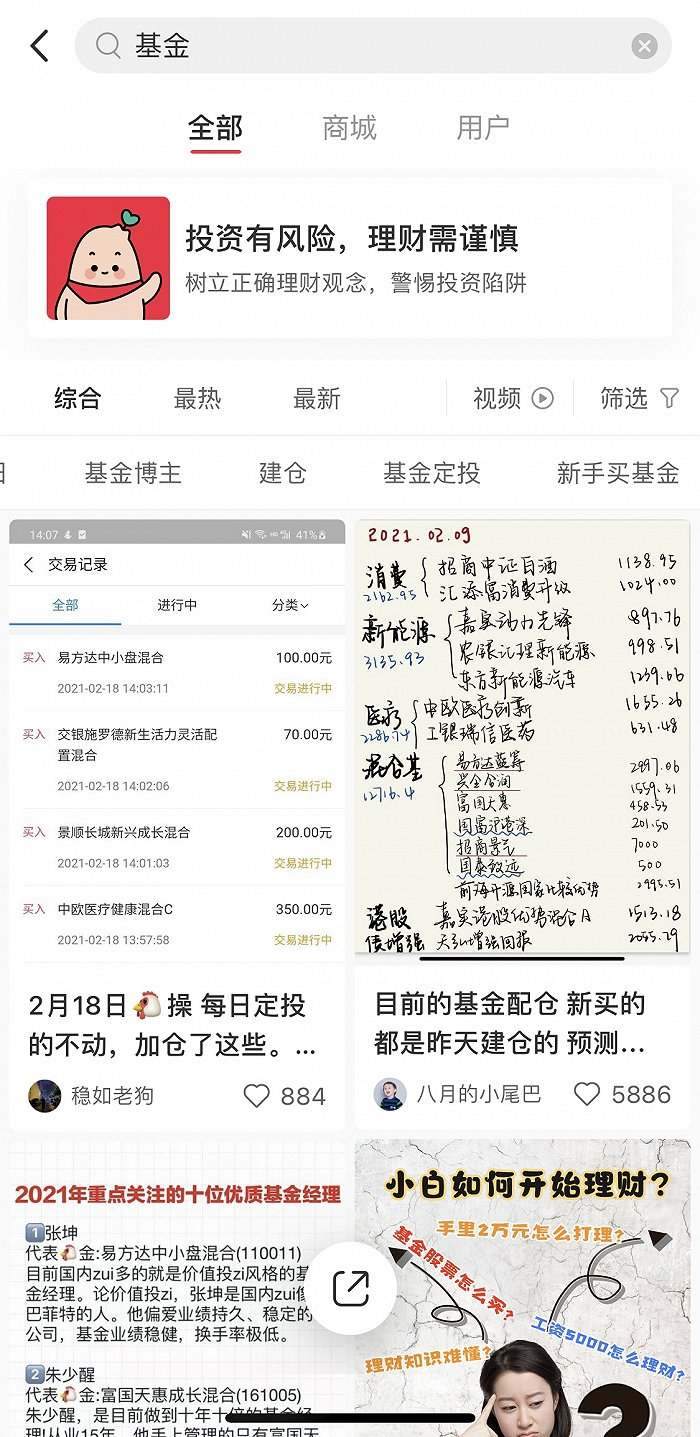 基金
全部 商城 用户
投资有风险，理财需谨慎
树立正确理财观念，警惕投资陷阱
综合 最热 最新 视频 筛选
基金博主 建仓 基金定投 新手买基金
14:07 41%
交易记录
全部 进行中 分类
买入 易方达中小盘混合 100.00元
2021-02-18 14:03:11 交易进行中
买入 交银施罗德新生活力灵活配 70.00元
置混合
2021-02-18 14:02:06 交易进行中
买入 景顺长城新兴成长混合 200.00元
2021-02-18 14:01:03 交易进行中
买入 中欧医疗健康混合C 350.00元
2021-02-18 13:57:58 交易进行中
2月18日🐔操 每日定投
的不动，加仓了这些。...
稳如老狗 884
2021.02.09
消费 招商中证白酒 1138.95
2162.95 汇添富消费升级 1024.00
新能源 嘉实动力先锋 897.76
3135.93 农银汇理新能源 998.51
东方新能源汽车 1239.66
医疗 中欧医疗创新 1655.26
2286.74 工银瑞信医药 631.48
混合基 易方达蓝筹 2997.06
12716.4 兴全合润 1559.31
富国天惠 458.53
国富沪港深 201.50
招商景气 7000
国泰致远 500
前海开源国家比较优势 2995.51
港股 嘉实港股优势混合A 1513.18
债增强 天弘增强回报 2055.79
目前的基金配仓 新买的
都是昨天建仓的 预测...
八月的小尾巴 5886
2021年重点关注的十位优质基金经理
1张坤
代表🐔金:易方达中小盘混合(110011)
目前国内zui多的就是价值投zi风格的基
金经理。论价值投zi，张坤是国内zui像
巴菲特的人。他偏爱业绩持久、稳定的
公司，基金业绩稳健，换手率极低。
2朱少醒
代表🐔金:富国天惠成长混合(161005)
朱少醒，是目前做到十年十倍的基金经
小白如何开始理财？
手里2万元怎么打理？
基金股票怎么买？
工资5000怎么理财？
理财知识难懂？
?